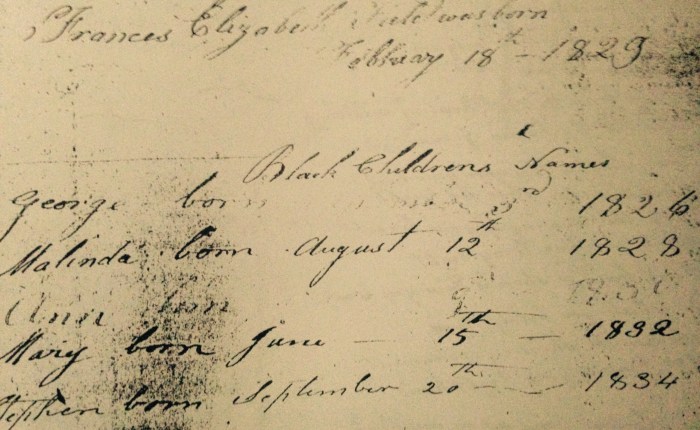 Frances Elizabeth Field was born
Febuary 18th - 1829
Black Childrens Names
George born 3rd 1826
Malinda born August 12th 1828
Ann born
Mary born June - 15th - 1832
Stephen born September 20th - 1834